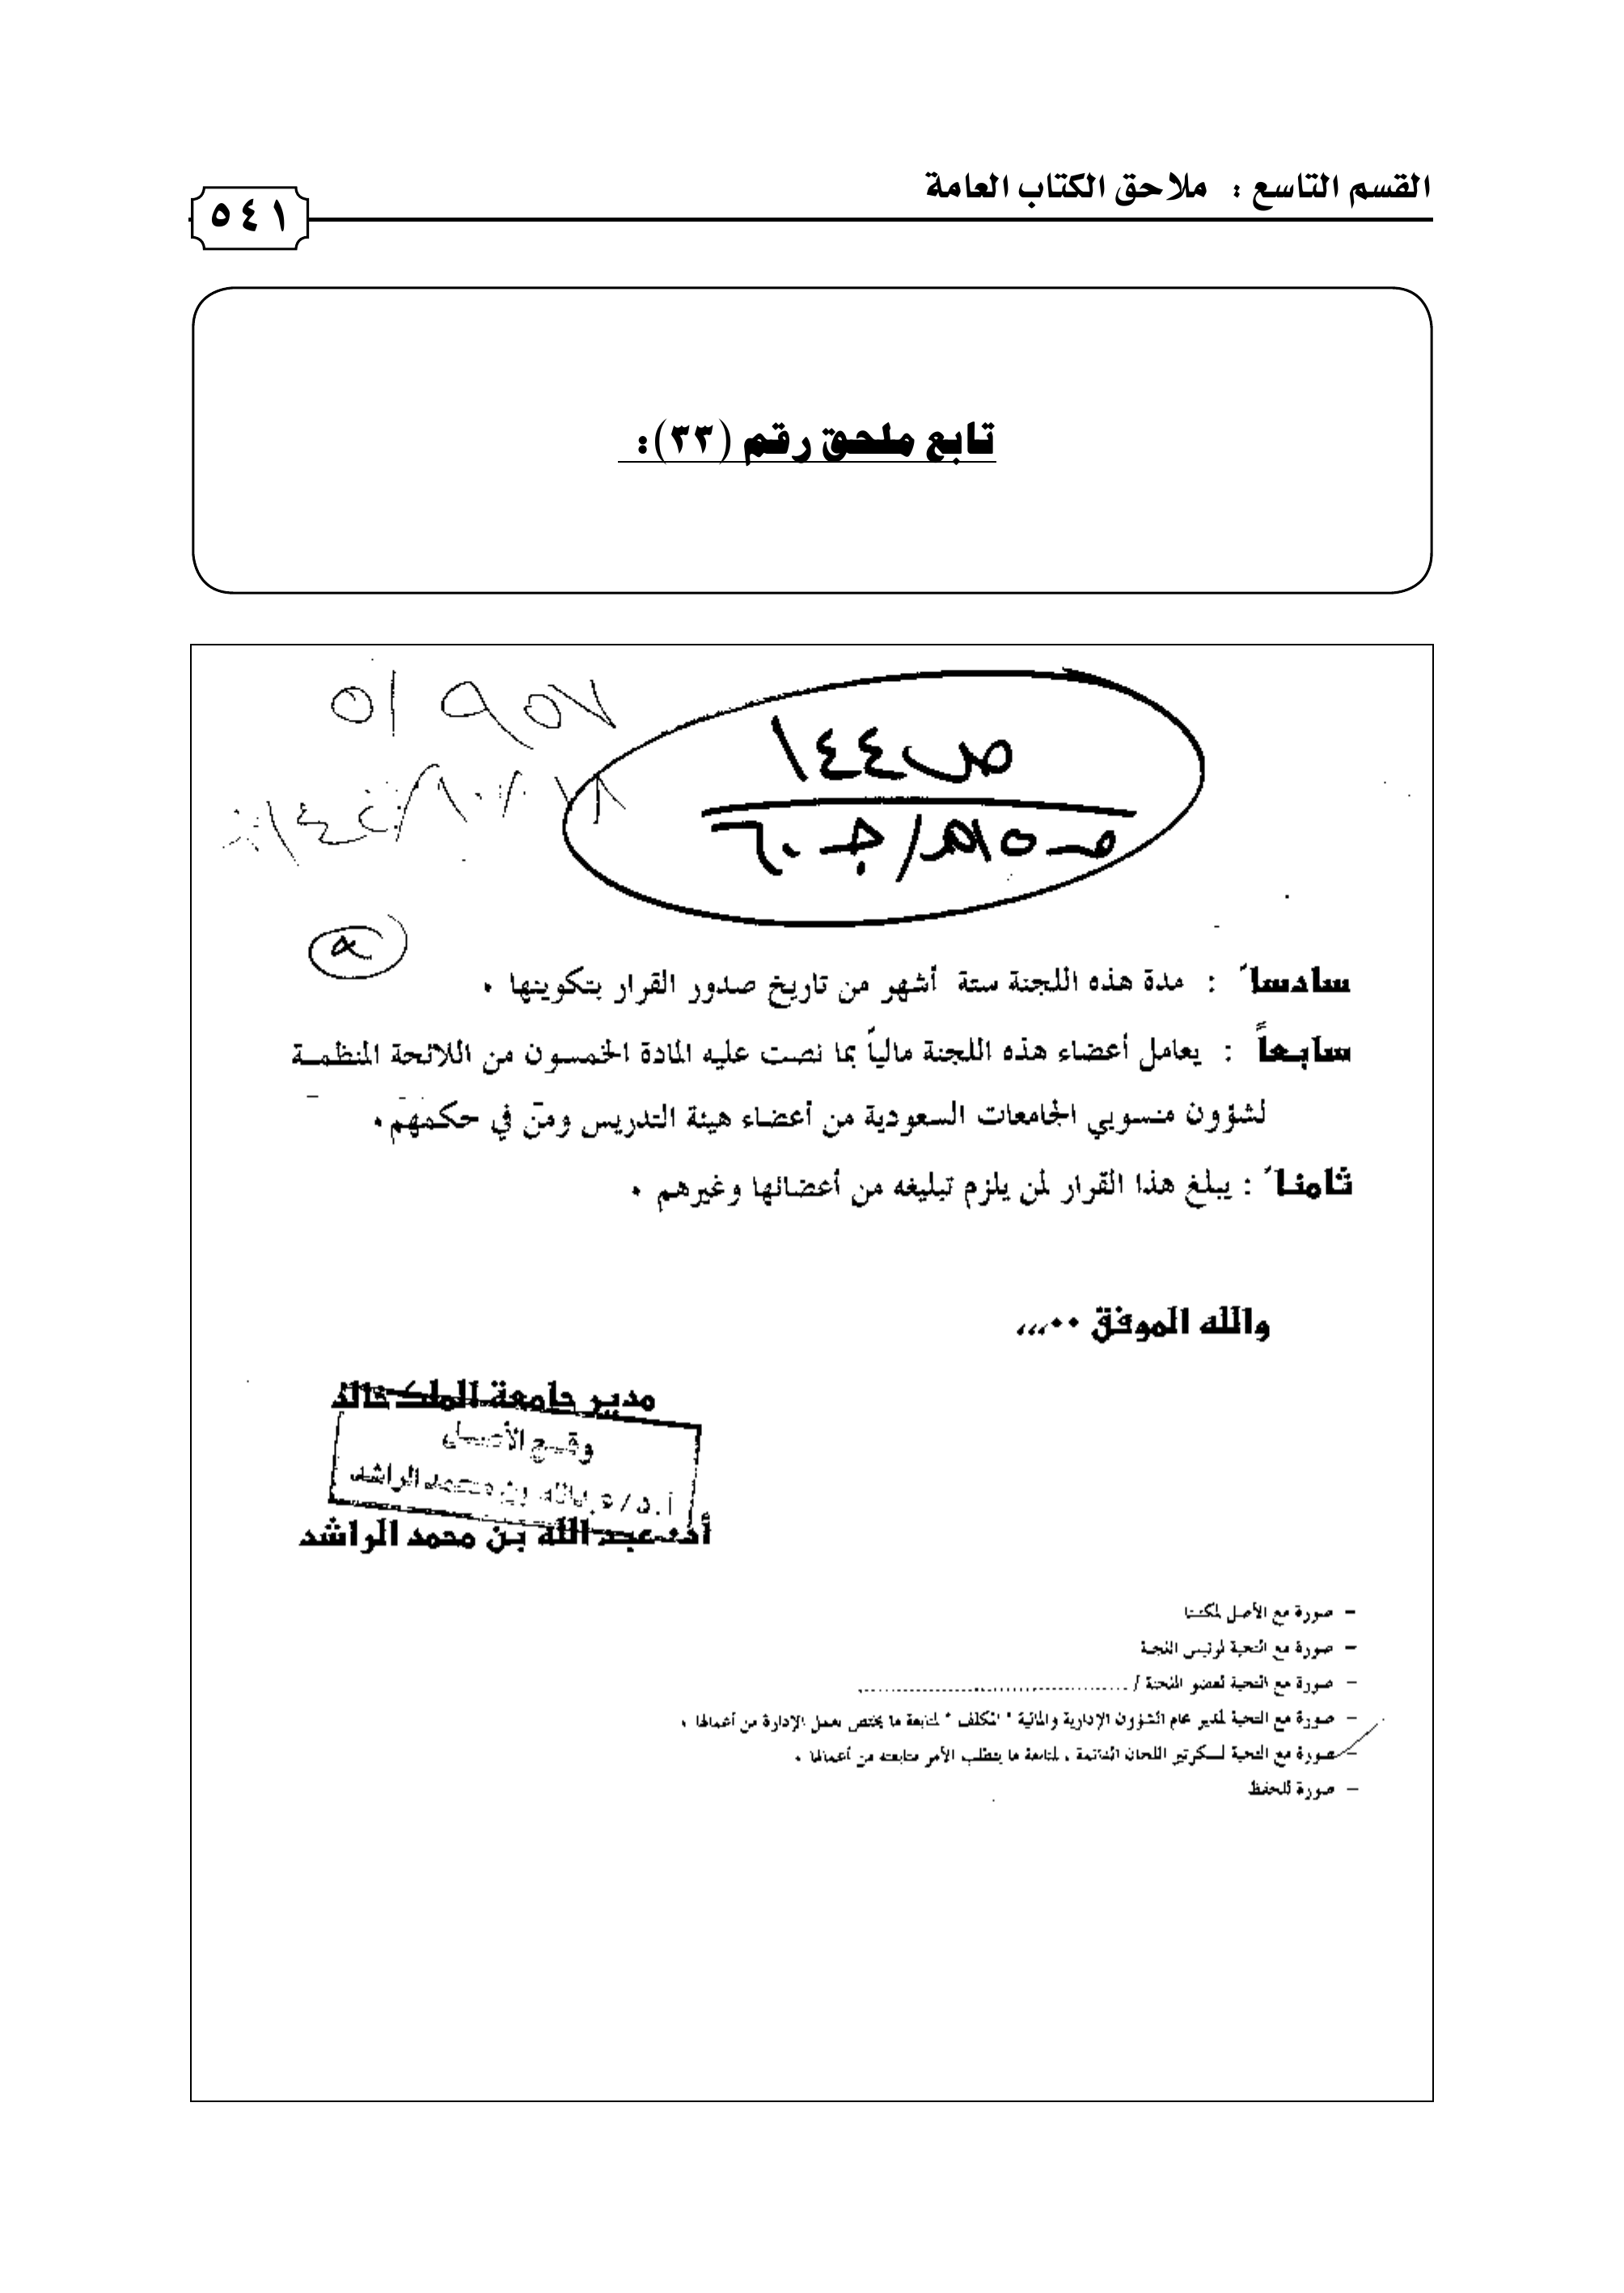 القسم التاسع : ملاحق الكتاب العامة
٥٤١
تابع ملحق رقم (٣٣):
ص٤٤١
سادساً : مدة هذه اللجنة ستة أشهر من تاريخ صدور القرار بتكوينها ٠
سابعاً : يعامل أعضاء هذه اللجنة مالياً بما نصت عليه المادة الخمسون من اللائحة المنظمــة
لشؤون منسوبي الجامعات السعودية من أعضاء هيئة التدريس ومن في حكمهم ٠
ثامناً : يبلغ هذا القرار لمن يلزم تبليغه من أعضائها وغيرهم ٠
والله الموفق ٠٠،،،
مدير جامعة الملك خالد
وقــع الأصــل
أ.د/عبدالله بن محمد الراشد
أ.د. عبد الله بن محمد الراشد
– صورة مع الأصل لمكتبنا
– صورة مع التحية لرئيس اللجنة
– صورة مع التحية لعضو اللجنة / ..............................
– صورة مع التحية لمدير عام الشؤون الإدارية والمالية " المكلف " لمتابعة ما يختص بعمل الإدارة من أعمالها ٠
– صورة مع التحية لسكرتير اللجان الدائمة ، لمتابعة ما يتطلب الأمر متابعته من أعمالها ٠
– صورة للحفظ